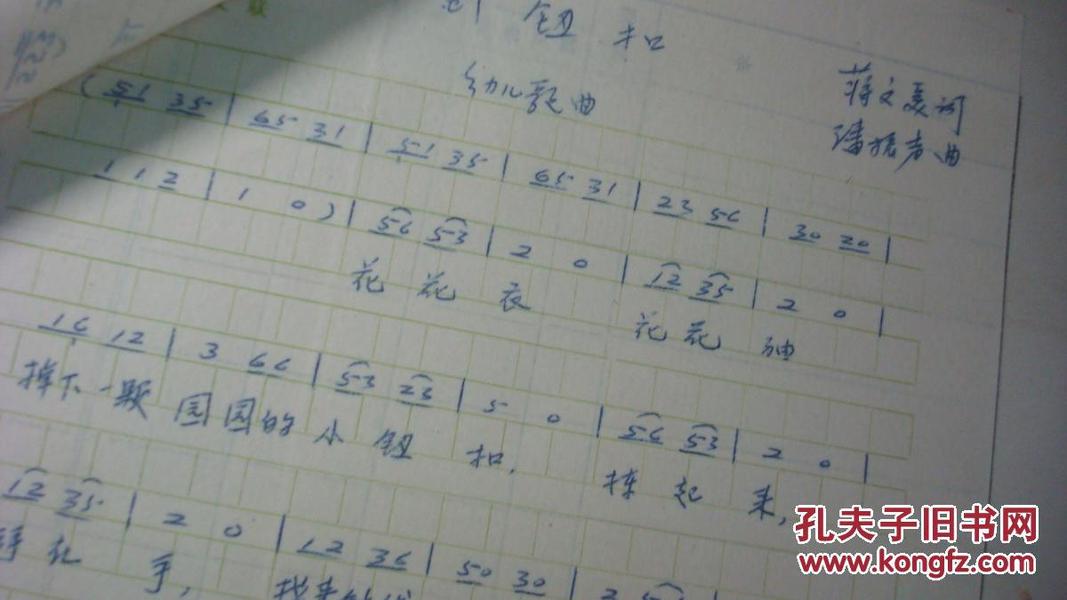 钮扣
幼儿歌曲
蒋文夏词
潘振声曲
(51 35 | 65 31 | 51 35 | 65 31 | 23 56 | 30 20 |
1 1 2 | 1 0 ) | 56 53 | 2 0 | 12 35 | 2 0 |
花花衣 花花袖
16 12 | 3 66 | 53 23 | 5 0 | 56 53 | 2 0 |
掉下一颗园园的小钮扣, 拣起来,
12 35 | 2 0 | 12 36 | 50 30 |
手, 找来
孔夫子旧书网
www.kongfz.com